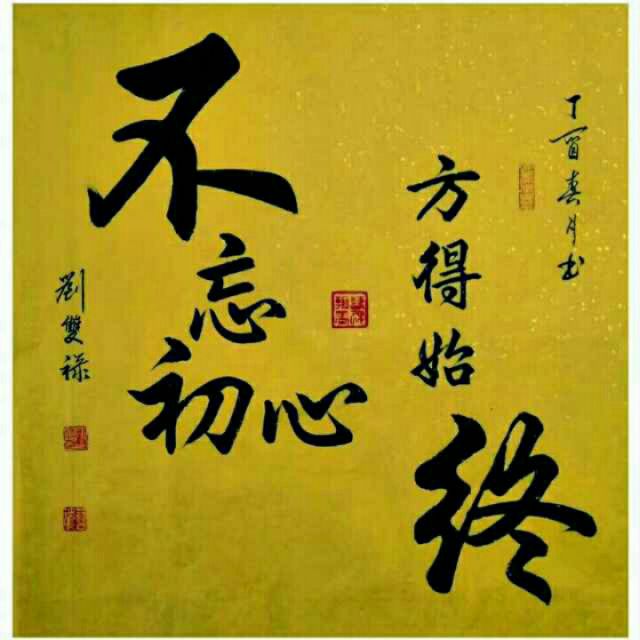 不忘初心
方得始终
丁酉春月书
劉雙祿